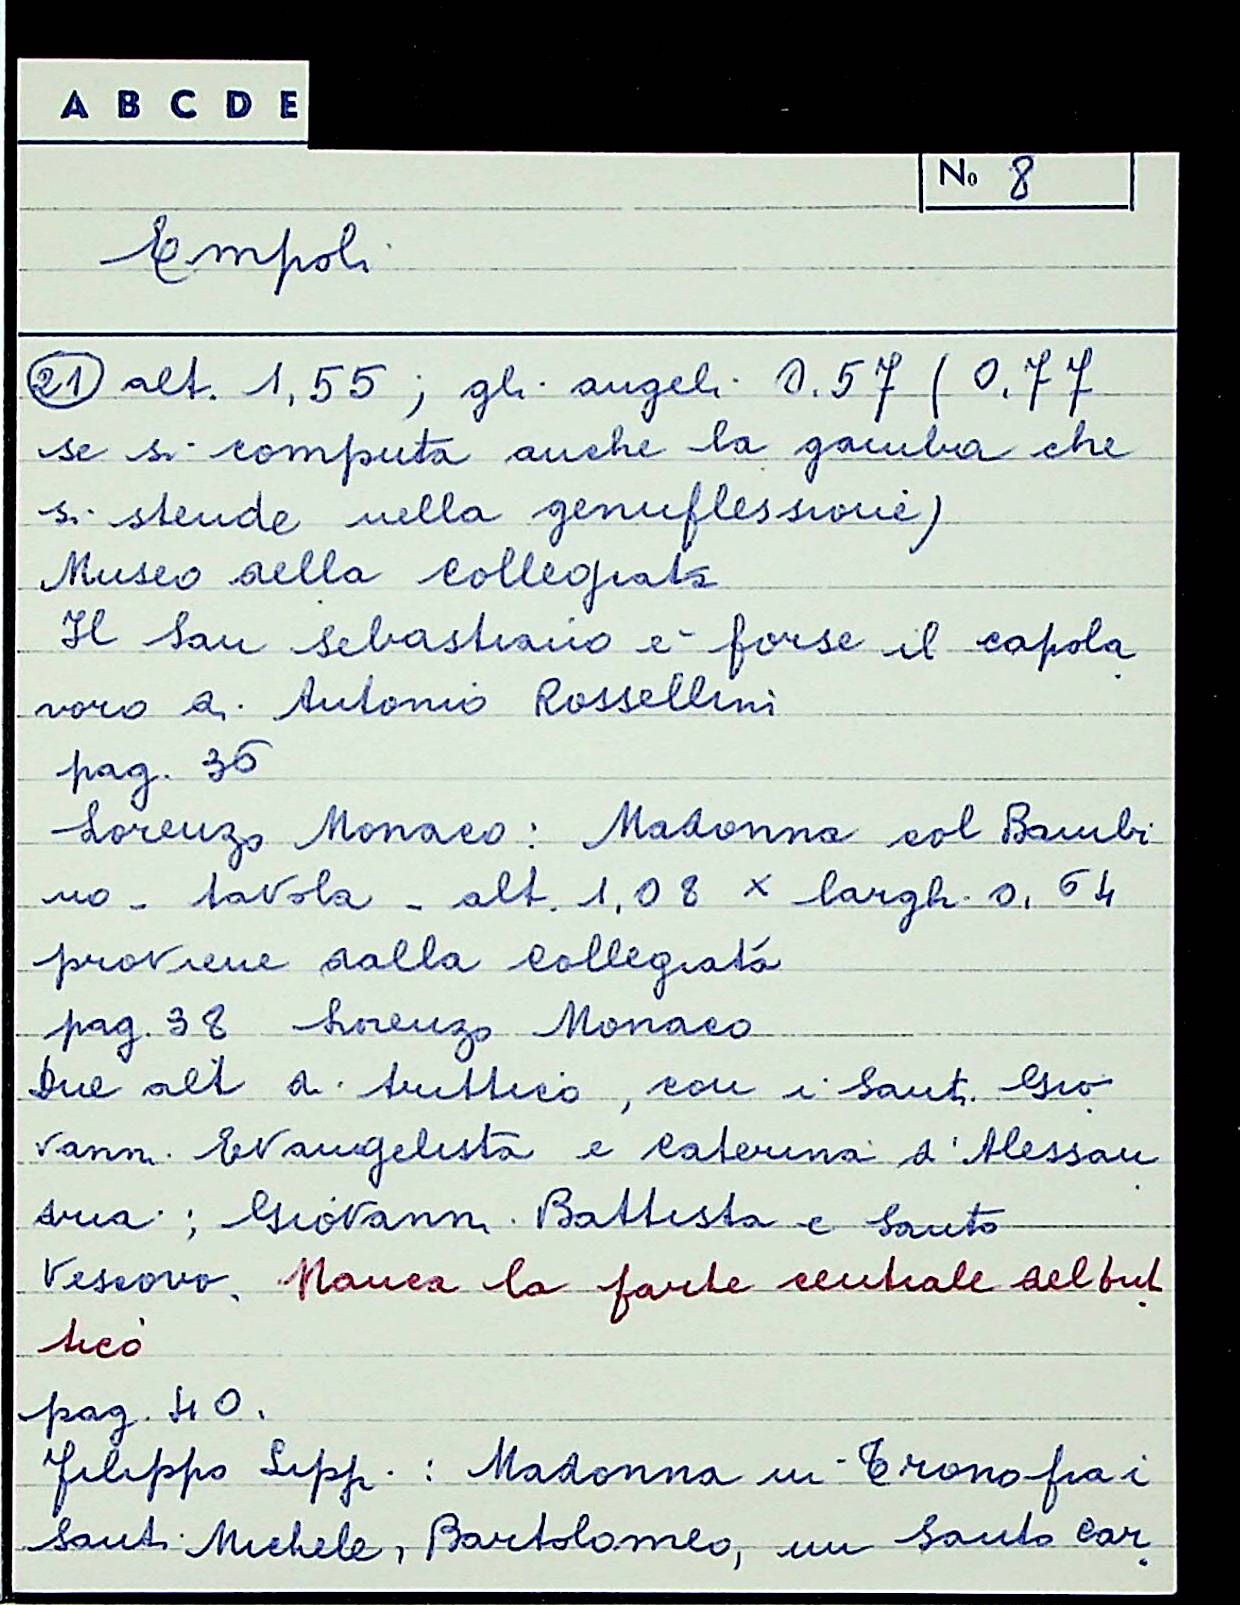 A B C D E
No 8
Empoli
21 alt. 1,55 ; gli angeli 0.57 ( 0.77
se si computa anche la gamba che
si stende nella genuflessione)
Museo della Collegiata
Il San Sebastiano è forse il capola
voro di Antonio Rossellini
pag. 36
Lorenzo Monaco : Madonna col Bambi
no - tavola - alt. 1,08 x largh. 0,64
proviene dalla Collegiata
pag. 38 Lorenzo Monaco
Due alt di trittico , con i Santi Gio
vanni Evangelista e Caterina d'Alessan
dria ; Giovanni Battista e Santo
Vescovo. Manca la parte centrale del trit
tico
pag. 40.
Filippo Lippi : Madonna in Trono fra i
Santi Michele, Bartolomeo, un Santo Car